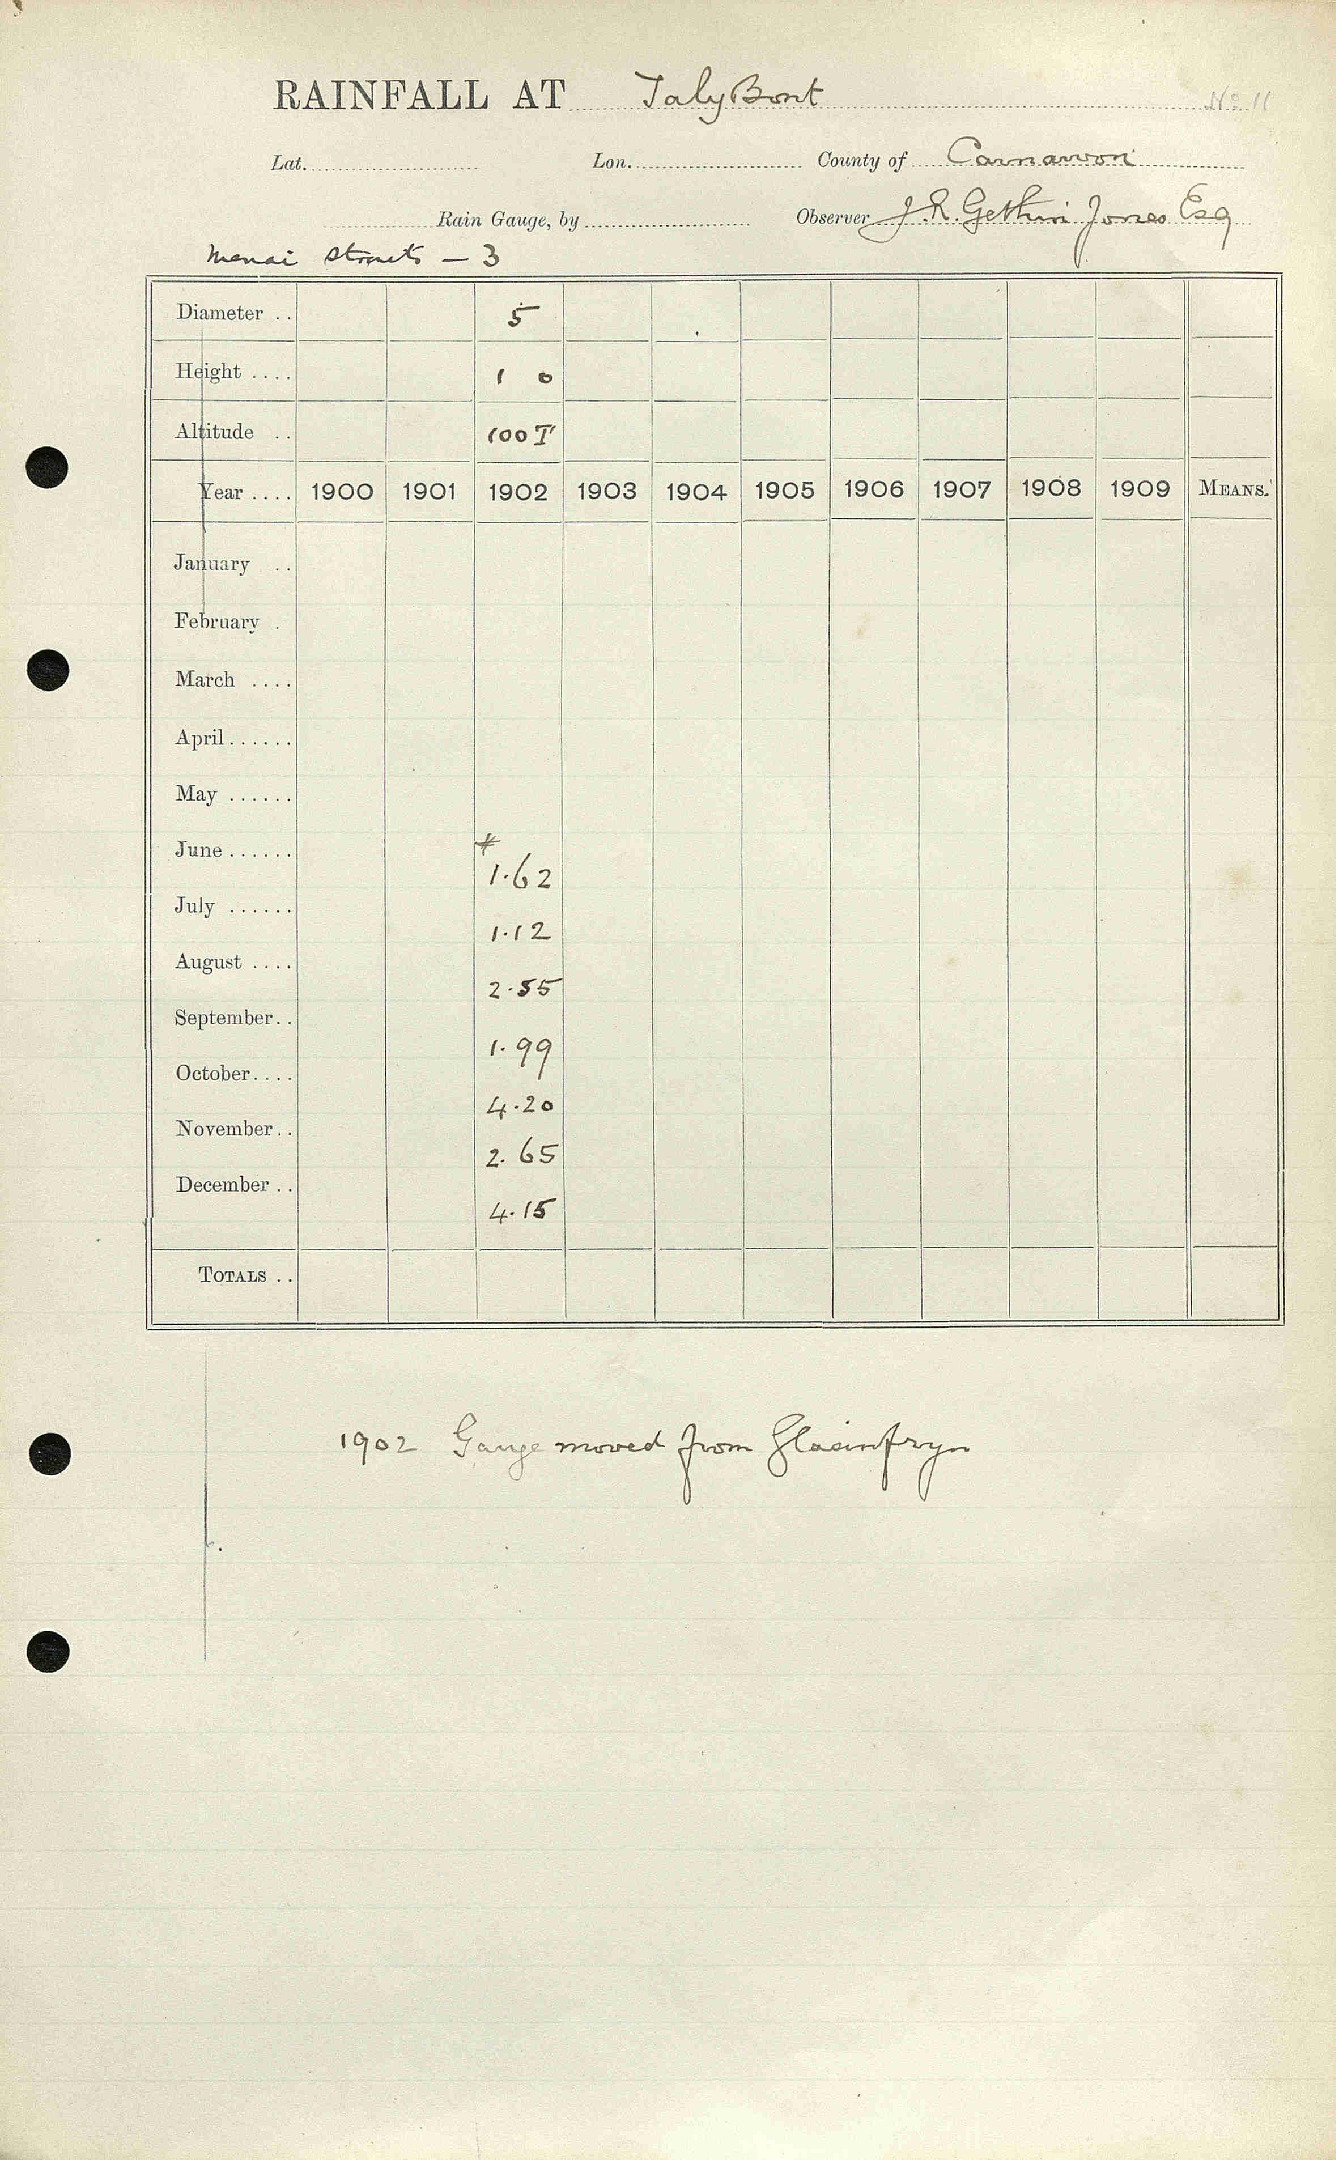 RAINFALL AT TalyBont No 11
Lat. Lon. County of Carnarvon
Rain Gauge, by Observer J. R. Gethin Jones Esq
Menai Straits - 3
Diameter .. 5
Height .... 1 0
Altitude .. 100 T
Year .... 1900 1901 1902 1903 1904 1905 1906 1907 1908 1909 MEANS.
January ..
February .
March ....
April ......
May ......
June ...... * 1.62
July ...... 1.12
August .... 2.55
September .. 1.99
October .... 4.20
November .. 2.65
December .. 4.15
TOTALS ..
1902 Gauge moved from Glasinfryn